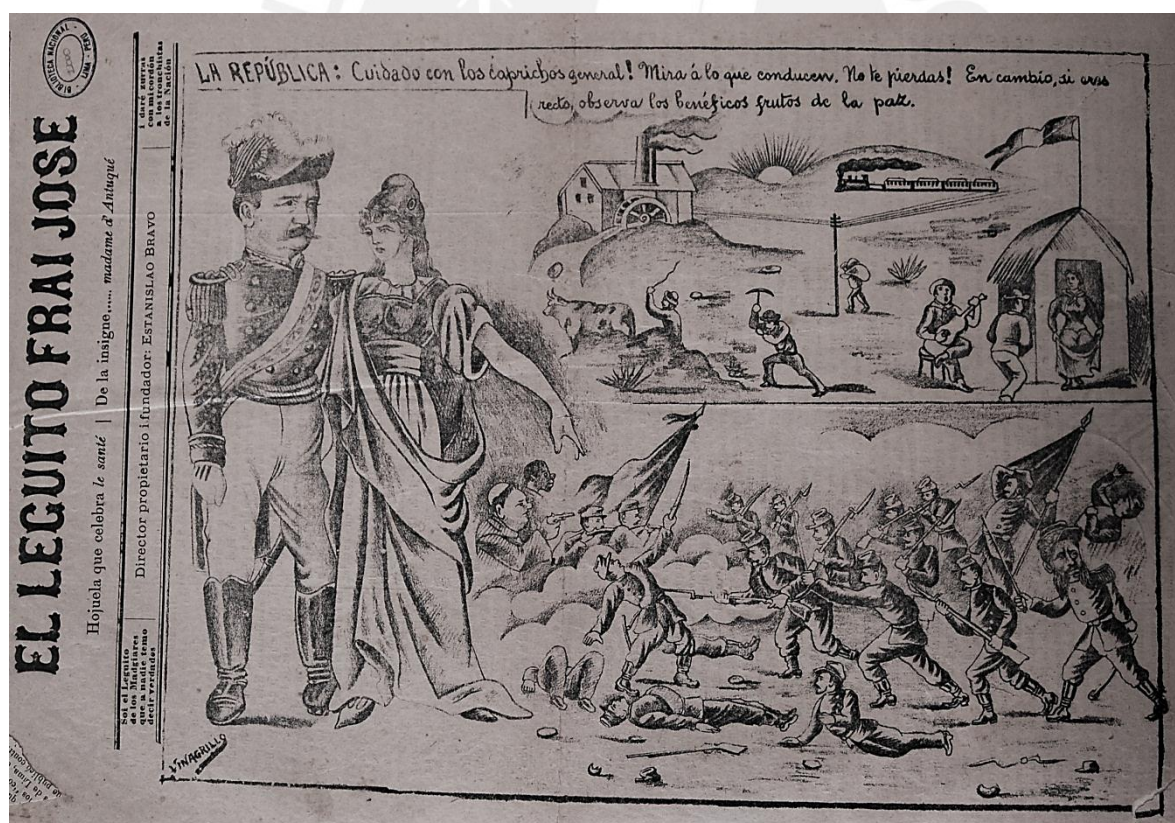 EL LEGUITO FRAI JOSE
Hojuela que celebra le santé | De la insigne...... madame d' Antuqué
Soi el Leguito
de los Madgiares
que a nadie temo
decir verdades
Director propietario i fundador: ESTANISLAO BRAVO
I daré zurras
con mi cordón
a los tronchistas
de la Nación
BIBLIOTECA NACIONAL
LIMA - PERU
LA REPÚBLICA: Cuidado con los caprichos general! Mira á lo que conducen. No te pierdas! En cambio, si eres
recto, observa los benéficos frutos de la paz.
VINAGRILLO